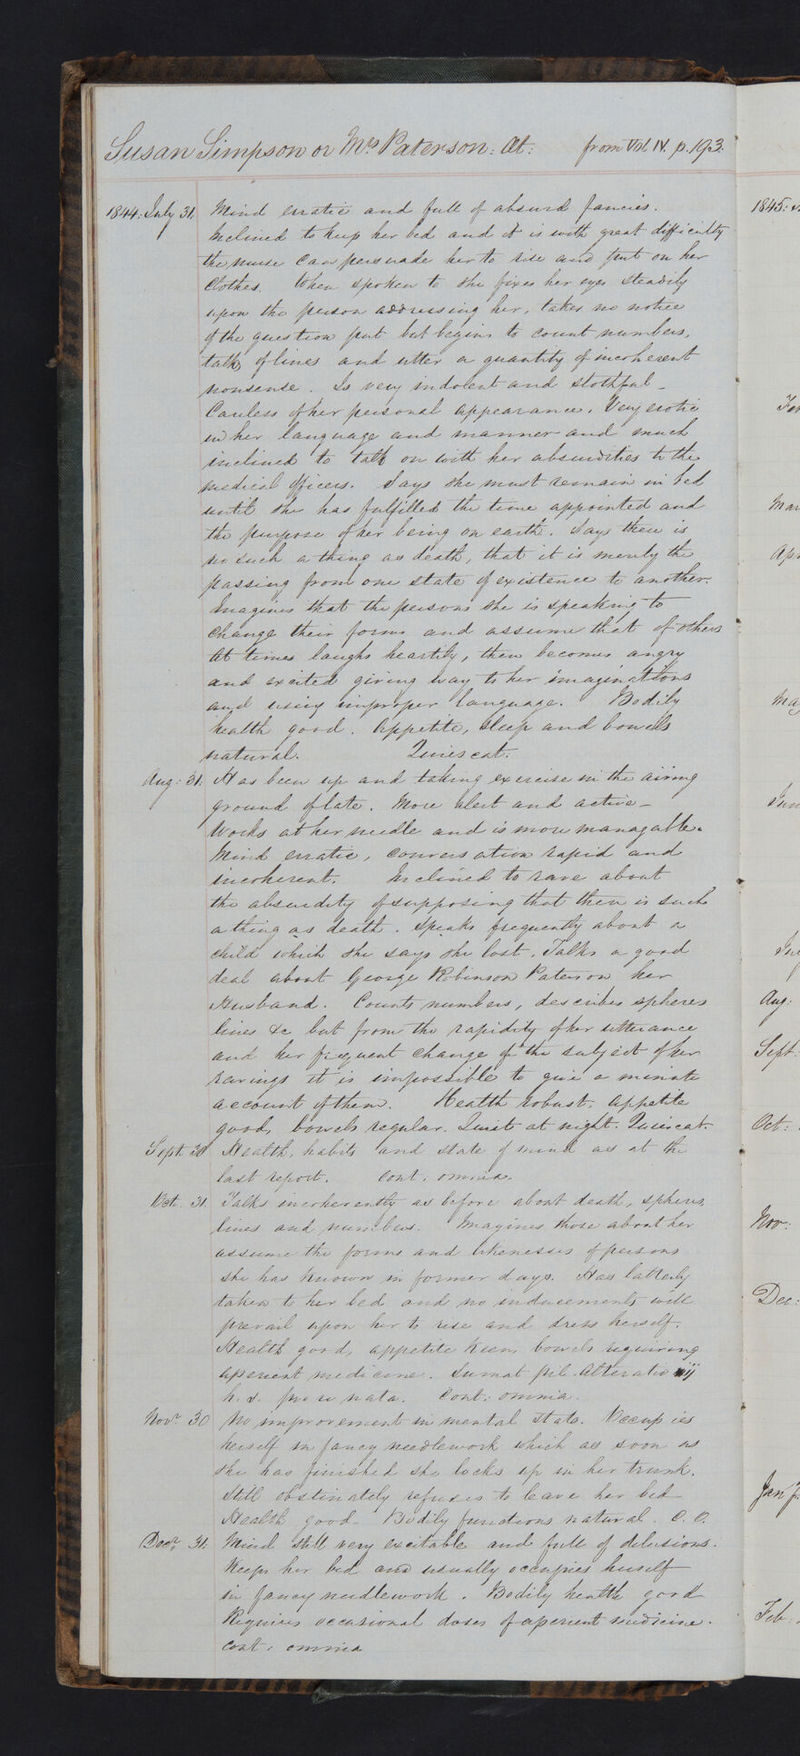 Susan Simpson or Mrs Paterson: At: from Vol IV. p. 193.
1844: July 31. Mind erratic and full of absurd fancies.
Inclined to keep her bed and it is with great difficulty
the nurse can persuade her to rise and put on her
Clothes. When spoken to she fixes her eyes steadily
upon the person addressing her, takes no notice
of the question put but begins to count numbers,
talks of lines and utter a quantity of incoherent
nonsense. Is very indolent and slothful -
Careless of her personal appearance. Very erotic
in her language and manner and much
inclined to talk on with her absurdities to the
medical officers. Says she must remain in bed
until she has fulfilled the time appointed and
the purpose of her being on earth. Says there is
no such a thing as death, that it is merely the
passing from one state of existence to another.
Imagines that the persons she is speaking to
change their forms and assume that of others
At times laughs heartily, then becomes angry
and excited giving way to her imaginations
and using improper language. Bodily
health good. Appetite, sleep and bowels
natural. Quiescat.
Aug: 31. Has been up and taking exercise in the airing
ground of late. More alert and active -
Works at her needle and is more managable.
Mind erratic, conversation rapid and
incoherent. Inclined to rave about
the absurdity of supposing that there is such
a thing as death. Speaks frequently about a
child which she says she lost. Talks a good
deal about George Robinson Paterson her
Husband. Counts numbers, describes spheres
lines &c but from the rapidity of her utterance
and her frequent change of the subject of her
ravings it is impossible to give a minute
account of them. Health robust. Appetite
good, bowels regular. Quiet at night. Quiescat.
Sept. 30 Health, habits and state of mind as at the
last report. Cont. omnia.
Oct. 31. Talks incoherently as before about death, spheres,
lines and numbers. Imagines those about her
assume the forms and likenesses of persons
she has known in former days. Has latterly
taken to her bed and no inducements will
prevail upon her to rise and dress herself.
Health good, appetite keen, bowels requiring
aperient medicine. Sumat pil. Alterativ ij
h. s. pro re nata. Cont: omnia.
Novr 30 No improvement in mental state. Occupies
herself in fancy needlework which as soon as
she has finished she locks up in her trunk.
Still obstinately refuses to leave her bed
Health good. Bodily functions natural. C. O.
Decr 31. Mind still very excitable and full of delusions.
Keeps her bed and usually occupies herself
in fancy needlework. Bodily health good
Requires occasional doses of aperient medicine.
Cont. omnia
1845:
Mar
Apr
May
Jun
Aug:
Sept.
Oct:
Nov:
Dec:
Jan
Feb: